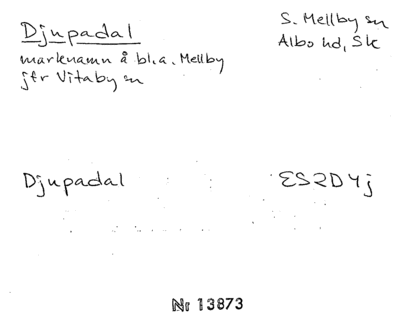 Djupadal
S. Mellby sn
Albo hd, Sk
marknamn å bl.a. Mellby
jfr Vitaby sn
Djupadal
ES2D4j
Nr 13873